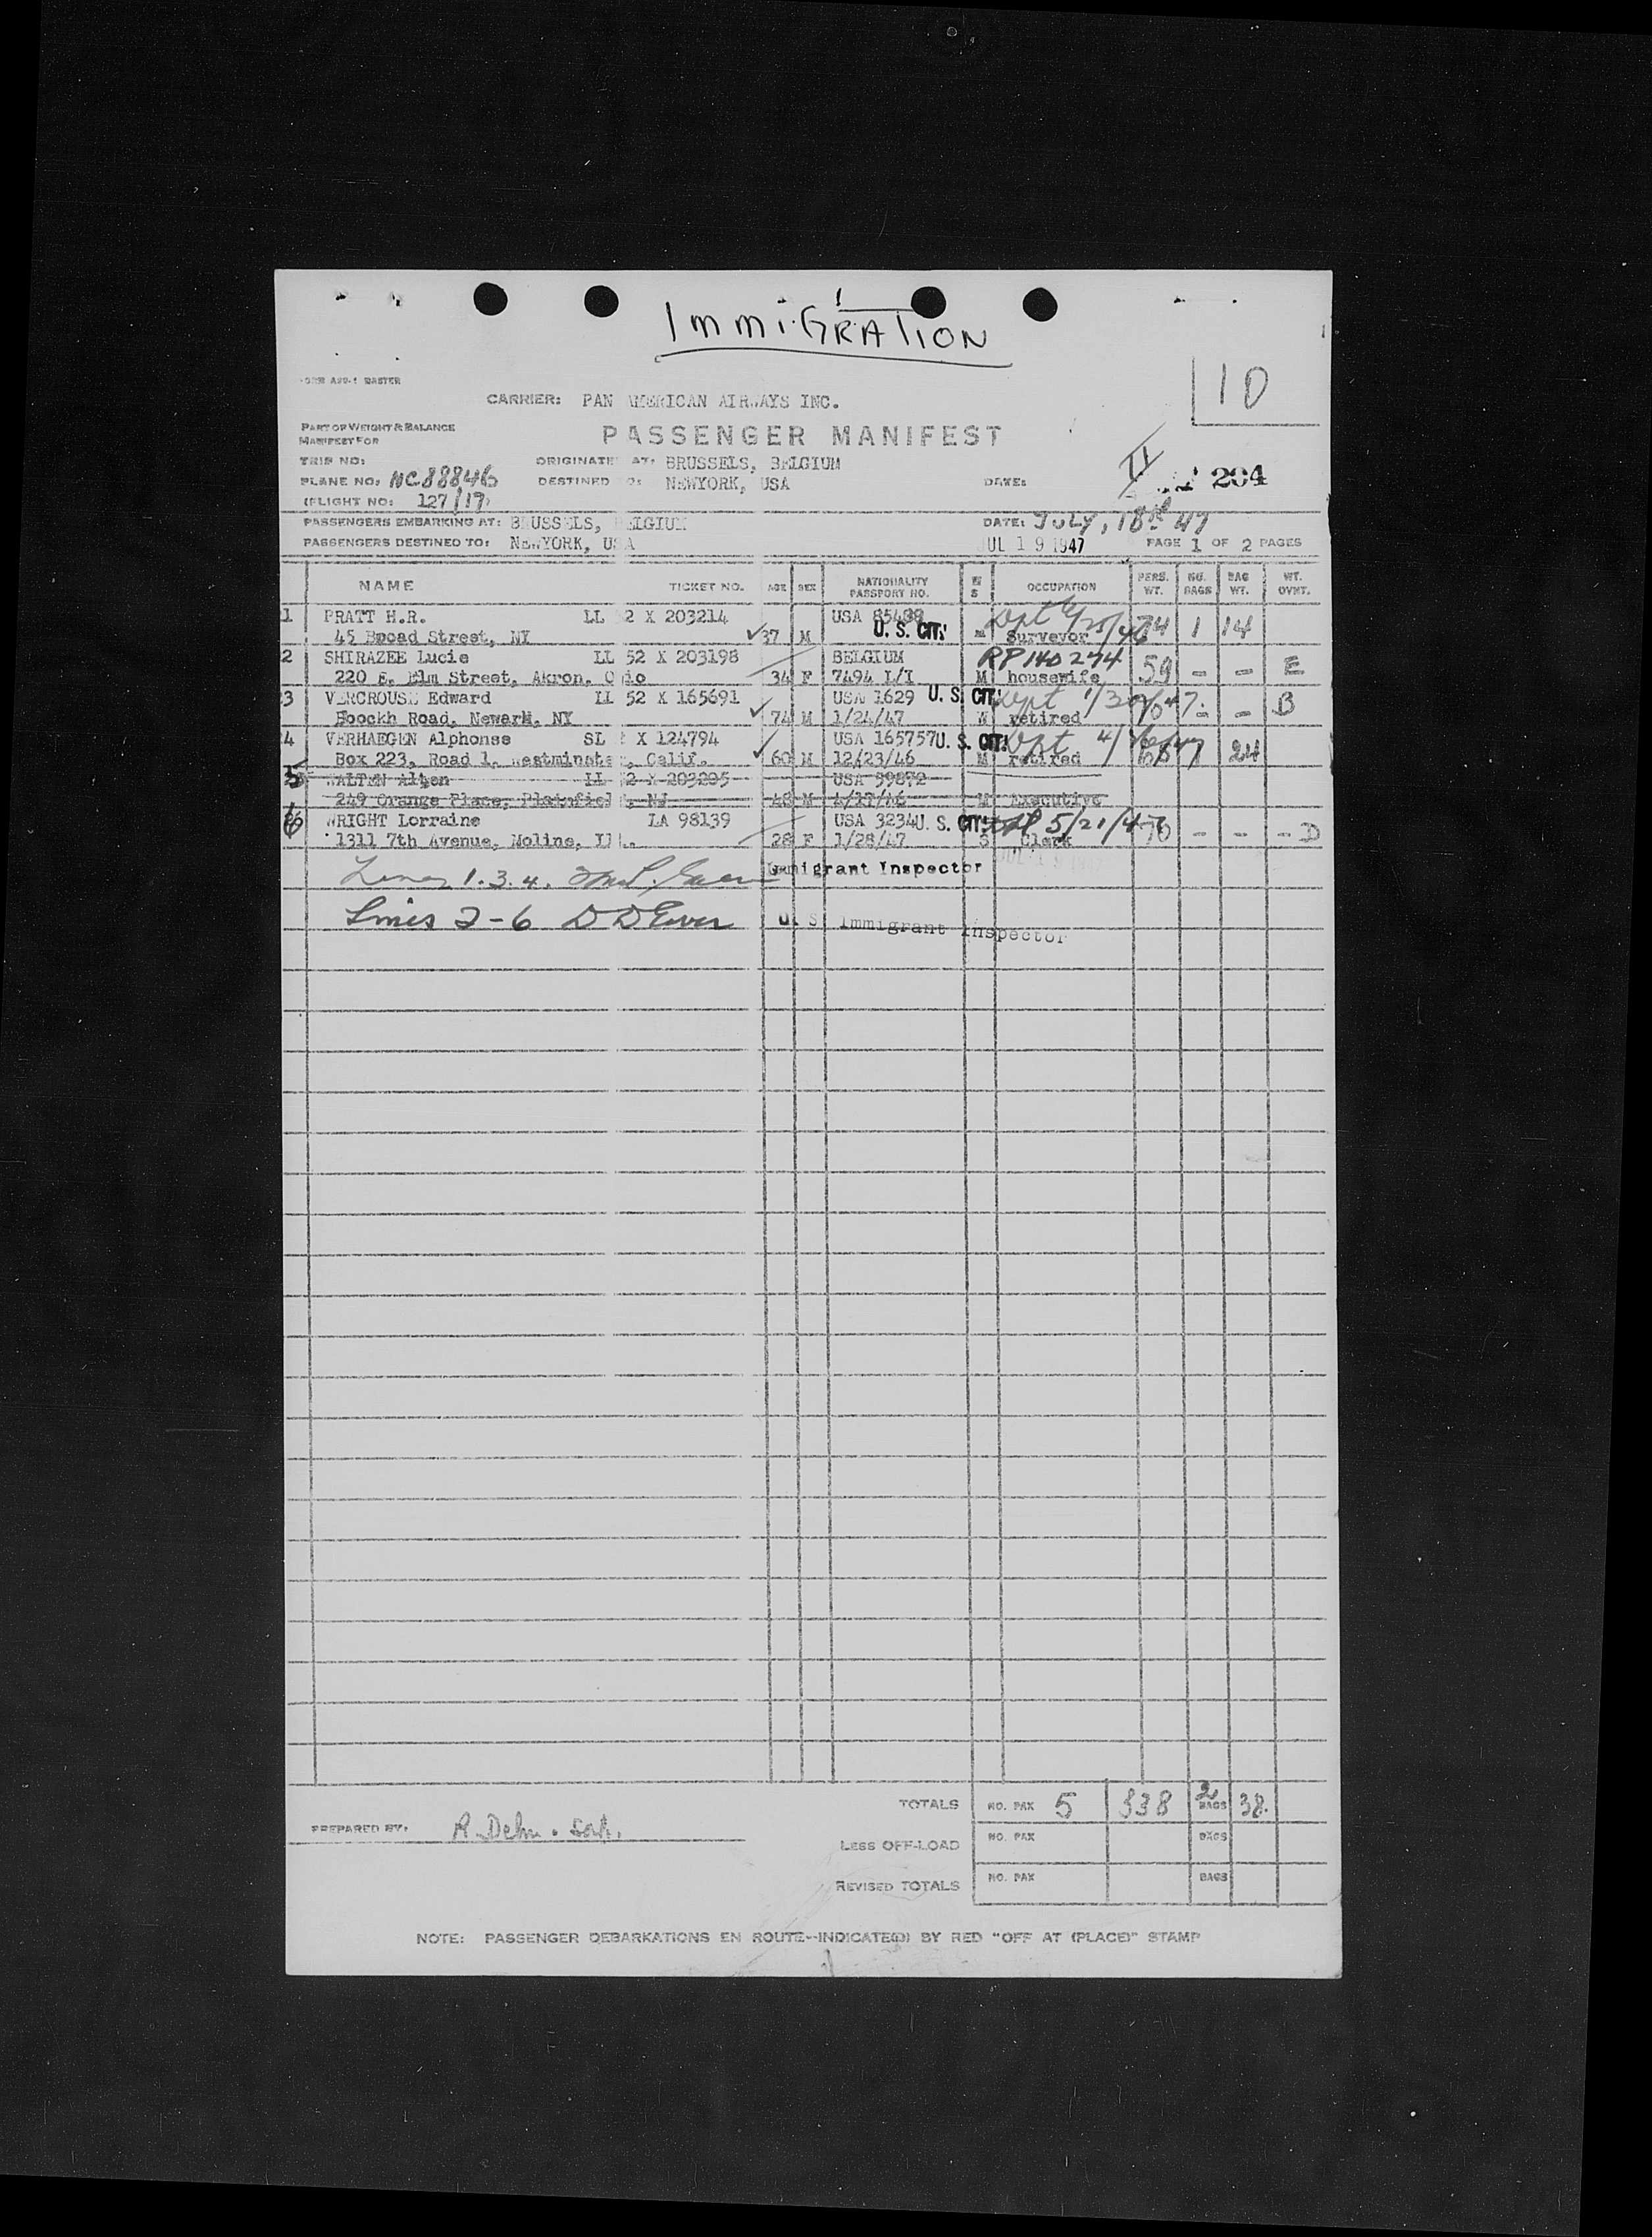 ImmiGRATION
FORM ASU-1 MASTER
10
CARRIER: PAN AMERICAN AIRWAYS INC.
PART OF WEIGHT & BALANCE
MANIFEST FOR
PASSENGER MANIFEST
TRIP NO: ORIGINATE AT: BRUSSELS, BELGIUM
PLANE NO: NC88846 DESTINED TO: NEWYORK, USA DATE: 204
(FLIGHT NO: 127/19)
PASSENGERS EMBARKING AT: BRUSSELS, BELGIUM DATE: JULY, 18 47
PASSENGERS DESTINED TO: NEWYORK, USA JUL 19 1947 PAGE 1 OF 2 PAGES
NAME TICKET NO. AGE SEX NATIONALITY PASSPORT NO. OCCUPATION PERS. WT. NO. BAGS BAG WT. WT. OVMT.
1 PRATT H.R. LL 2 X 203214 USA 85488 Dpt
45 Broad Street, NY 37 M U. S. CIT. M Surveyor 1 14
2 SHIRAZEE Lucie LL 52 X 203198 BELGIUM RP 140274
220 E. Elm Street, Akron, Ohio 34 F 7494 I/I M housewife 59 - - E
3 VERCROUSE Edward LL 52 X 165691 USA 1629 U. S. CIT. Dpt
Boockh Road, Newark, NY 74 M 1/24/47 W retired - - B
4 VERHAEGEN Alphonse SL 2 X 124794 USA 165757 U. S. CIT. Dpt
Box 223, Road 1, Westminster, Calif. 60 M 12/23/46 M retired 24
5 WALTEN Alten LL 2 X 203205 USA 59872
249 Orange Place, Plainfield, NJ 48 M 4/17/46 M Executive
6 WRIGHT Lorraine LA 98139 USA 3234 U. S. CIT. 5/21/47
1311 7th Avenue, Moline, Ill. 28 F 1/28/47 S Clerk 70 - - - D
Lines 1.3.4. Immigrant Inspector
Lines 2-6 U. S. Immigrant Inspector
TOTALS NO. PAX 5 338 2 BAGS 38.
PREPARED BY:
LESS OFF-LOAD NO. PAX BAGS
REVISED TOTALS NO. PAX BAGS
NOTE: PASSENGER DEBARKATIONS EN ROUTE--INDICATE(D) BY RED "OFF AT (PLACE)" STAMP